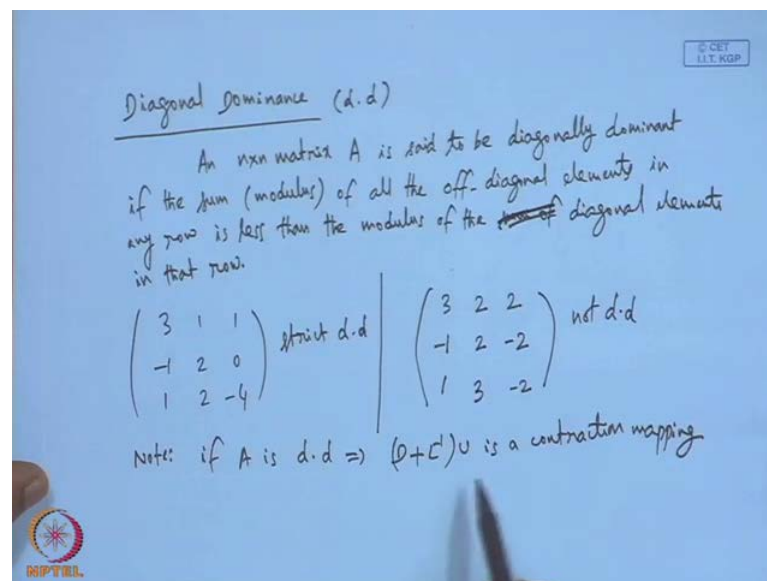 © CET
I.I.T. KGP
Diagonal Dominance (d.d)
An nxn matrix A is said to be diagonally dominant
if the sum (modulus) of all the off-diagonal elements in
any row is less than the modulus of the diagonal elements
in that row.
3 1 1
-1 2 0
1 2 -4
strict d.d
3 2 2
-1 2 -2
1 3 -2
not d.d
Note: if A is d.d => (D+L')U is a contraction mapping
NPTEL